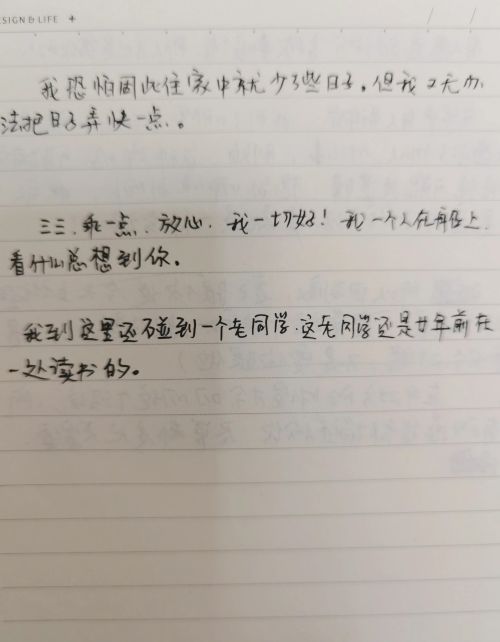 ESIGN & LIFE +
我恐怕因此住家中就少了些日子。但我又无办
法把日子弄快一点。
三三，乖一点，放心，我一切好！我一个人在船上，
看什么总想到你。
我到这里还碰到一个老同学，这老同学还是廿年前在
一处读书的。